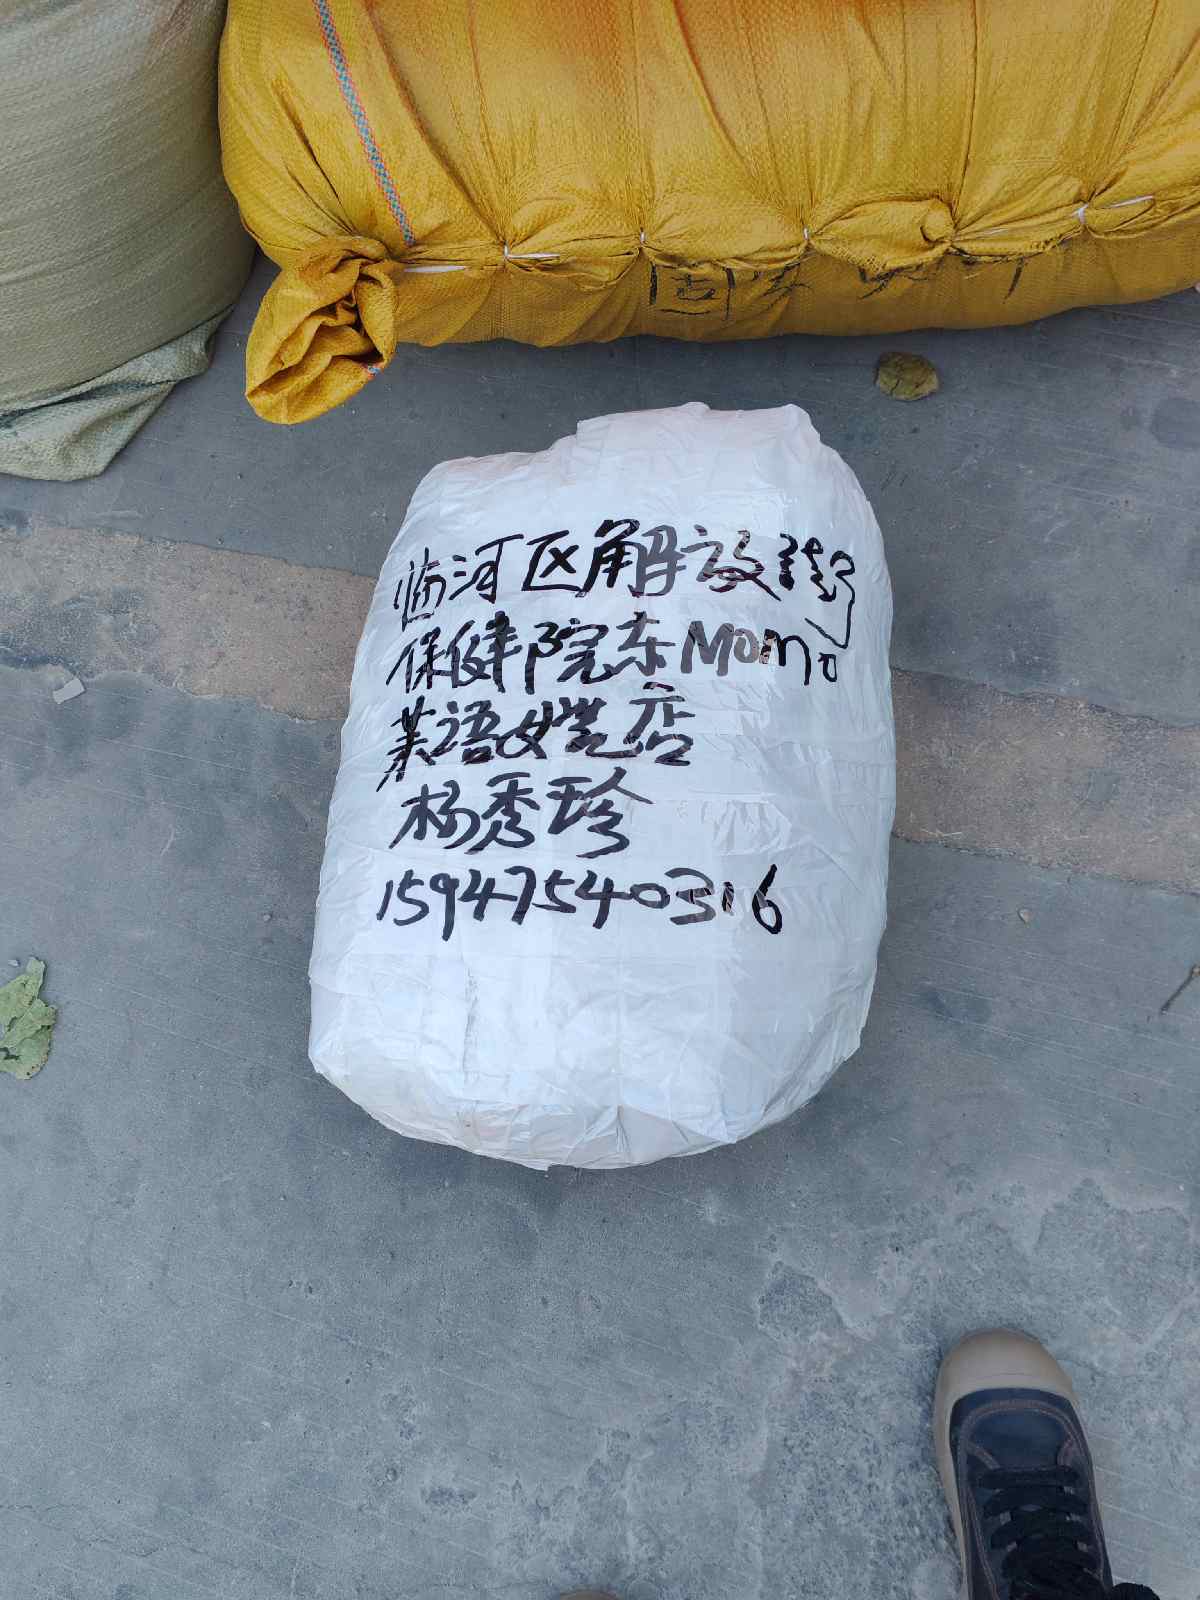 临河区解放街
保健院东MOMO
英语女装店
杨秀珍
15947540316